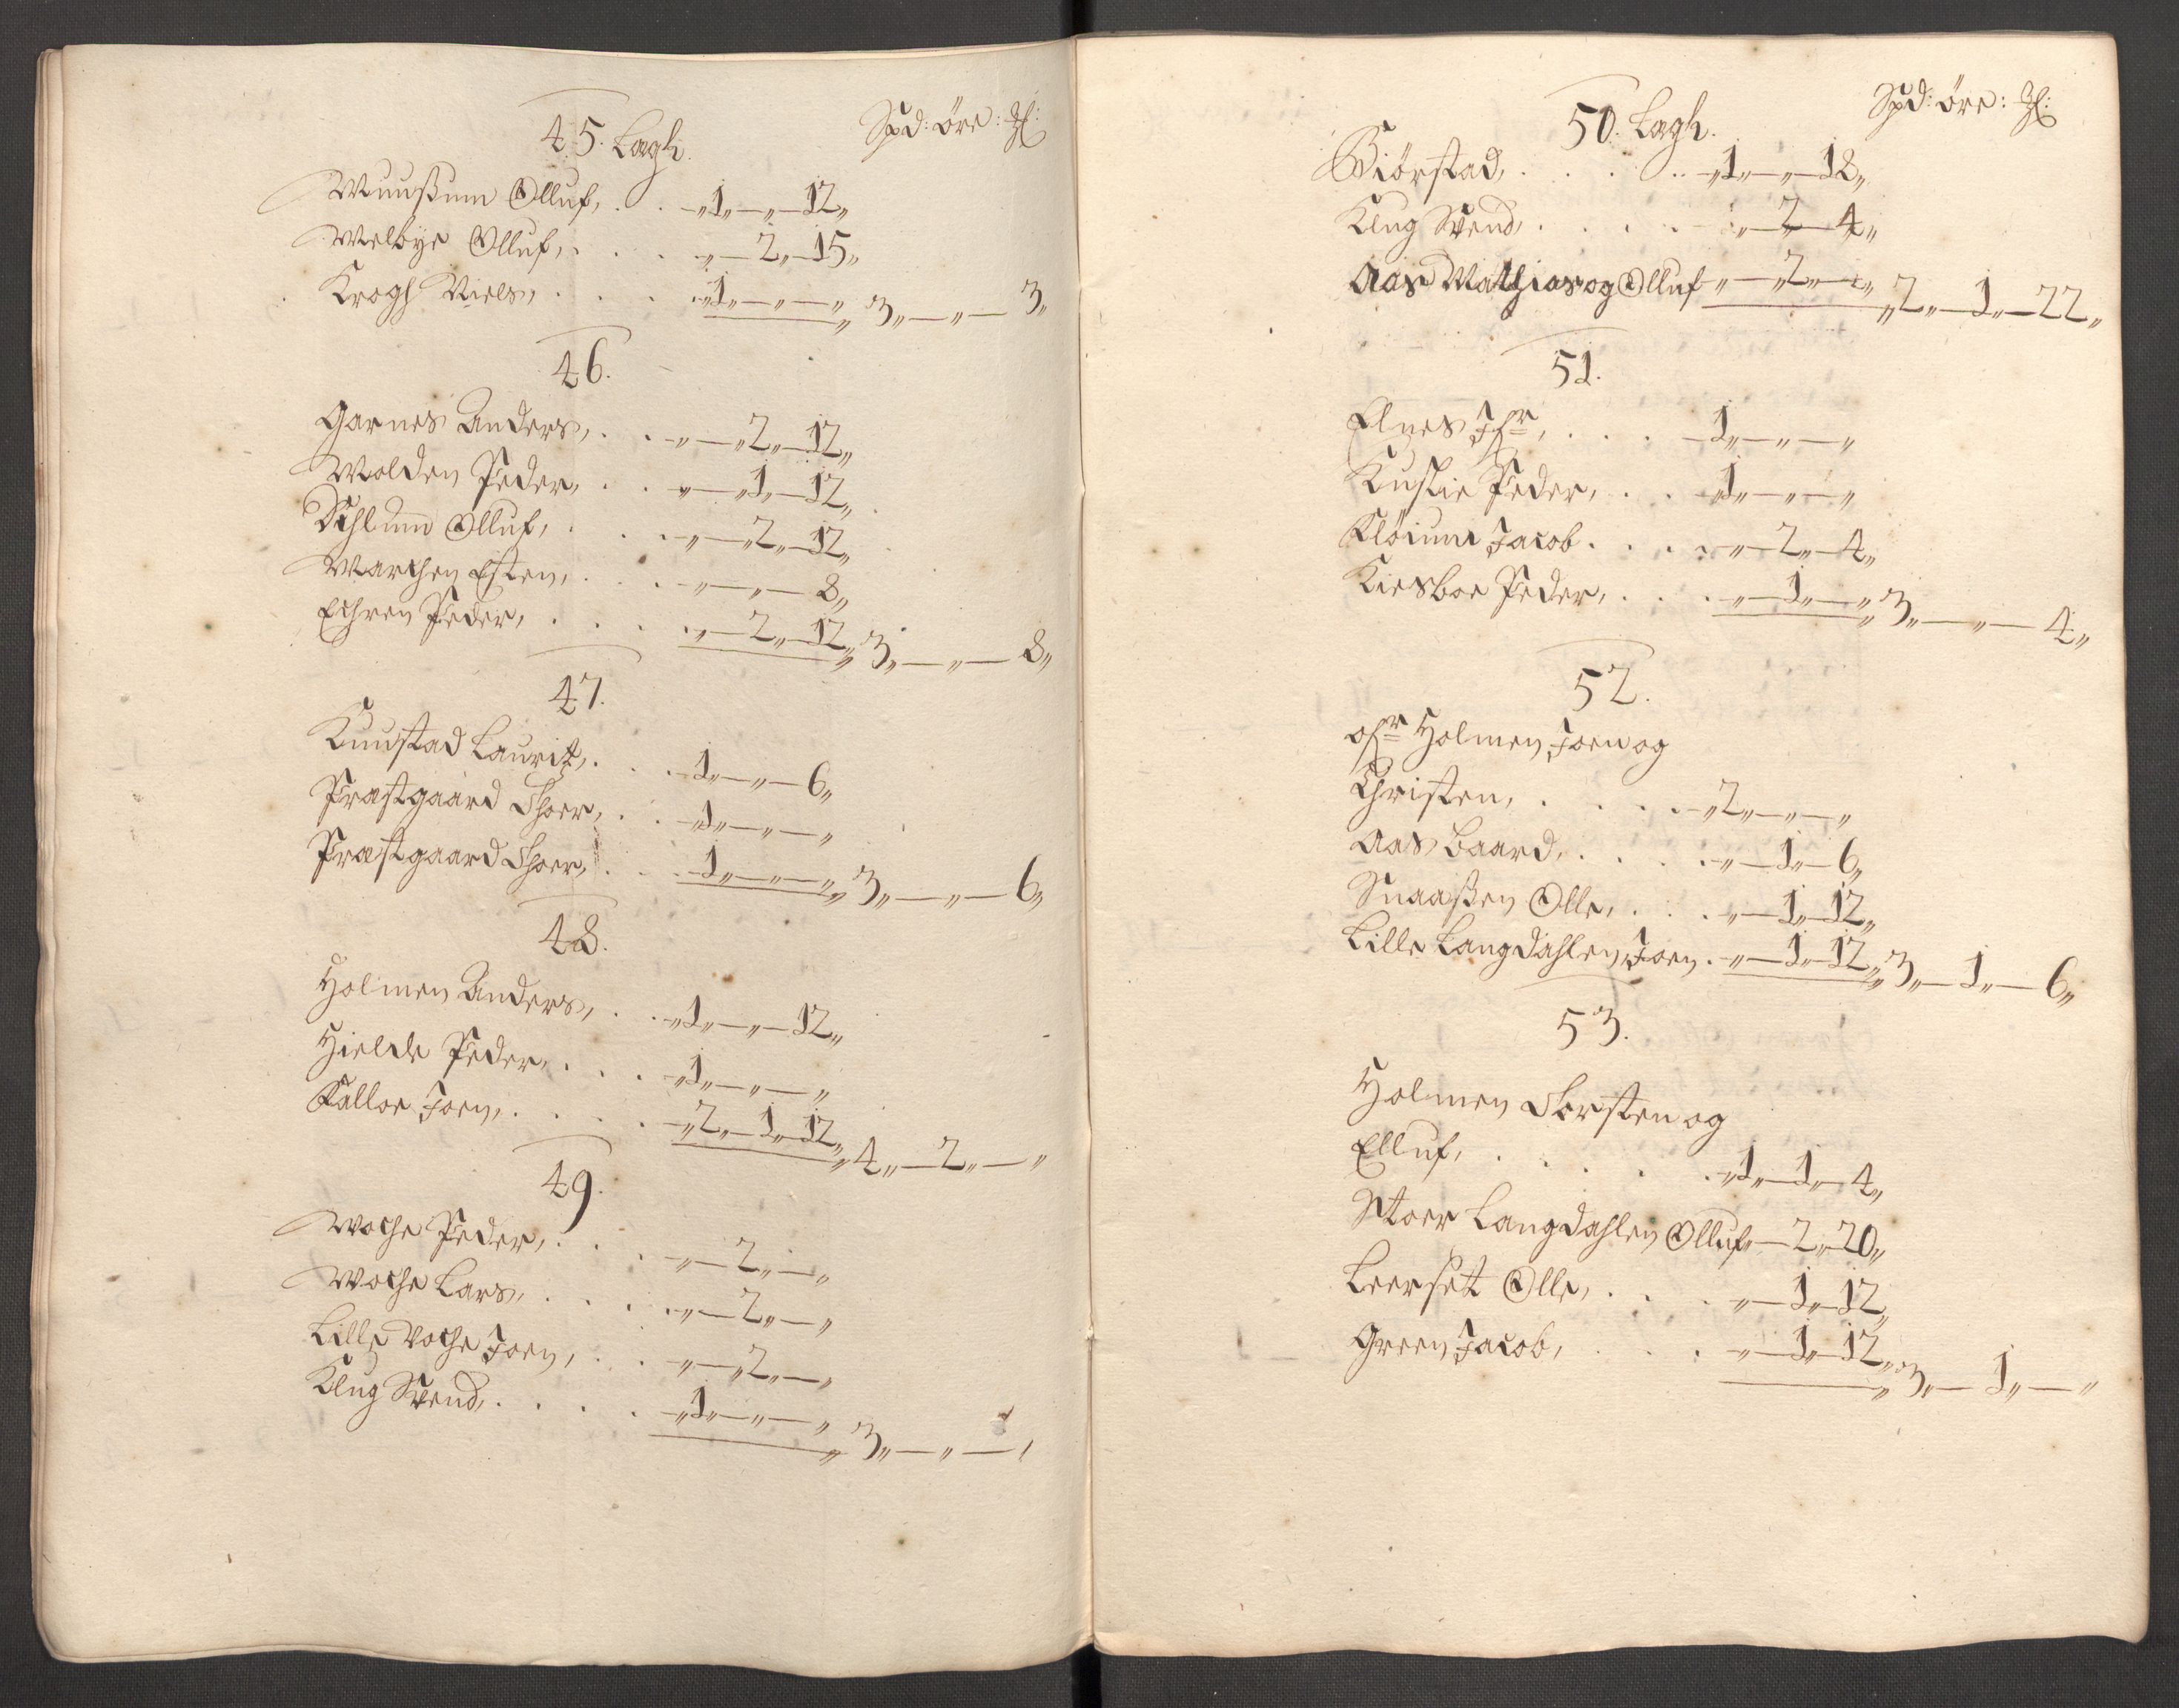 45. Lagh. Spd: öre: 
Muusum Olluf, . . „1„—„—12„
Melbye Olluf, . . . „—2„—15„
Krogh Niels, . . . „1„—„—„ 3„—„—3„
46.
Garnes Anders, . . „—„2„—12„
Molden Peder, . . „—„1„—12„
Sehlum Olluf, . . . „—„2„—12„
Marchen Esten, . . . „—„—8„
Echren Peder, . . . . „—2„—12„ 3„—„—8„
47.
Kuustad Laurit, . . . 1„—„—6„
Præstgaard Thoer, . . 1„—„—„
Præstgaard Thoer, . . . 1„—„—„ 3„—„—6„
48.
Holmen Anders, . . „1„—„—12„
Hielde Peder, . . . „1„—„—„
Kalloe Joen, . . . . „2„—1„—12„ 4„—2„—„
49.
Woche Peder, . . . „—2„—„
Woche Lars, . . . . „—2„—„
Lille Voche Joen, . . „—„2„—„
Klug Svend, . . . . „1„—„—„ 3„—„—
50. Lagh. Spd: öre: 
Biörstad, . . . . . „1„—„—18„
Klug Svend, . . . . . „—2—4„
Aas Mathias og Olluf „—„2„—„ 2„—1„—22„
51.
Elnes Jfr, . . . . 1„—„—„
Kuslie Peder, . . . 1„—„—„
Klöcum Jacob . . . . „—2„—4„
Kiesboe Peder, . . . „—1„—„ 3„—„—4„
52.
ofr Holmen Joen og
Christen, . . . . . „2„—„—„
Aas Baard, . . . . „—1„—6„
Snaasen Olle, . . . „—1„—12„
Lille Langdahlen Joen . „—1„—12„ 3„—1„—6„
53.
Holmen Torsten og
Elluf, . . . . . „1„—1„—4„
Stoer Langdahlen Olluf „—2„—20„
Leerset Olle, . . . „—1„—12„
Green Jacob, . . . „—1„—12„ 3„—1„—„